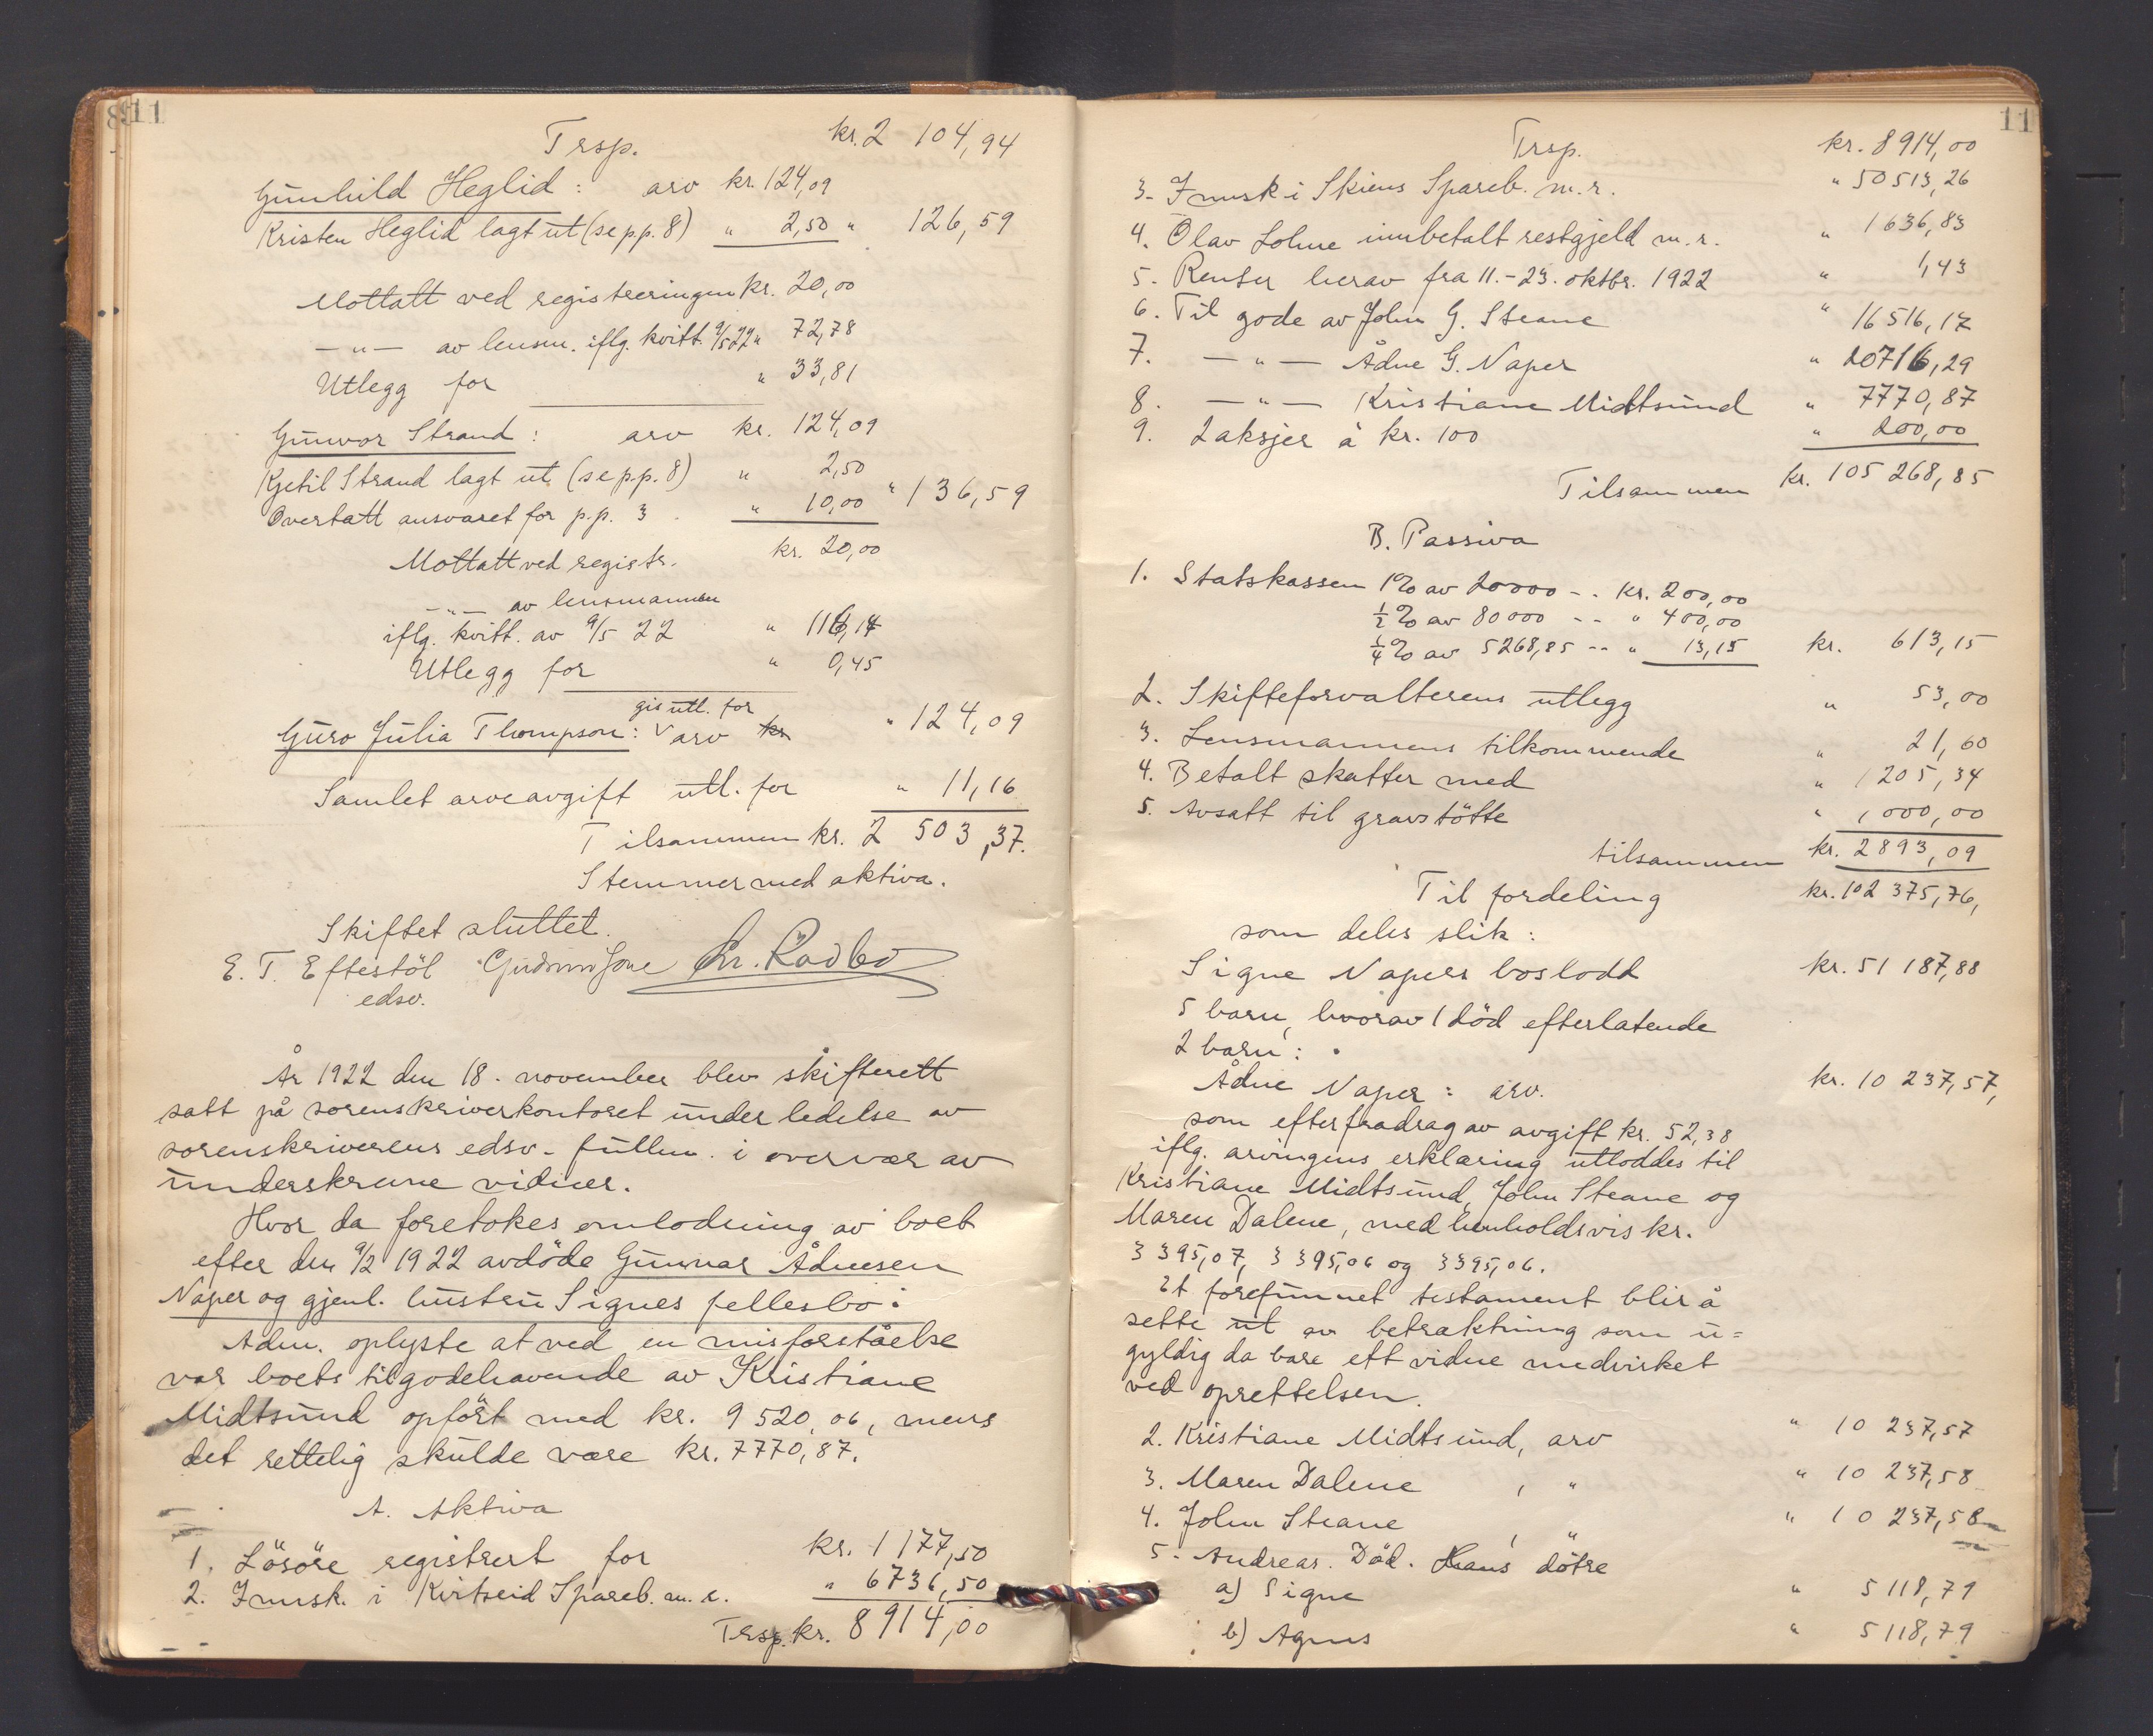 11
Trsp. kr. 2 104,94
Gunhild Heglid: arv kr. 124,09
Kristen Heglid lagt ut (se p.p. 8) " 2,50 " 126,59
Mottatt ved registreringen kr. 20,00
—"— av lensm. iflg. kvitt. 9/5 22 " 72,78
Utlegg for " 33,81
Gunvor Strand: arv kr. 124,09
Kjetil Strand lagt ut (se p.p. 8) " 2,50
Overtatt ansvaret for p.p. 3. " 10,00 " 136,59
Mottatt ved registr. kr. 20,00
—"— av lensmannen
iflg. kvitt. av 9/5 22 " 116,14
Utlegg for " 0,45
gis utl. for
Guro Julia Thompson: arv kr " 124,09
Samlet arveavgift utl. for " 11,16
Tilsammen kr. 2 503,37.
Stemmer med aktiva.
Skiftet sluttet.
E. T. Eftestöl
edsv.
År 1922 den 18. november blev skifterett
satt på sorenskriverkontoret under ledelse av
sorenskriverens edsv. fullm. i overvær av
underskrevne vidner.
Hvor da foretokes omlodning av boet
efter den 9/2 1922 avdöde Gunnar Ådnesen
Naper og gjenl. hustru Signes fellesbo:
Adm. oplyste at ved en misforståelse
var boets tilgodehavende av Kristiane
Midtsund opfört med kr. 9 520,06, mens
det rettelig skulde være kr. 7770,87.
A. Aktiva
1. Lösöre registrert for kr. 1 177,50
2. Innsk. i Kvitseid Spareb. m. r. " 6736,50
Trsp. kr. 8 914,00
11
Trsp. kr. 8914,00
3. Innsk i Skiens Spareb. m.r. " 50513,26
4. Olav Lohne innbetalt restgjeld m.r. " 1636,83
5. Renter herav fra 11.-23. oktbr. 1922 " 1,43
6. Til gode av John G. Steane " 16516,17
7. —"— Ådne G. Naper " 20716,29
8. —"— Kristiane Midtsund " 7770,87
9. 2 aksjer à kr. 100 " 200,00
Tilsammen kr. 105 268,85
B. Passiva
1. Statskassen 1% av 20000 -- kr. 200,00
1/2% av 80000 -- " 400,00
1/4% av 5268,85 -- " 13,15 kr. 613,15
2. Skifteforvalterens utlegg " 53,00
3. Lensmannens tilkommende " 21,60
4. Betalt skatter med " 1205,34
5. Avsatt til gravstötte " 1000,00
tilsammen kr. 2893,09
Til fordeling kr. 102 375,76,
som deles slik:
Signe Napers boslodd kr. 51 187,88
5 barn, hvorav 1 död efterlatende
2 barn:
Ådne Naper: arv. kr. 10 237,57,
som efter fradrag av avgift kr. 52,38
iflg. arvingens erklæring utloddes til
Kristiane Midtsund, John Steane og
Maren Dalene, med henholdsvis kr.
3 395,07, 3 395,06 og 3395,06.
Et forefunnet testament blir å
sette ut av betraktning som u=
gyldig da bare ett vidne medvirket
ved oprettelsen.
2. Kristiane Midtsund, arv " 10 237,57
3. Maren Dalene , " " 10 237,58
4. John Steane , " " 10 237,58
5. Andreas. Död. Hans dötre
a) Signe " 5 118,79
b) Agnes " 5118,79